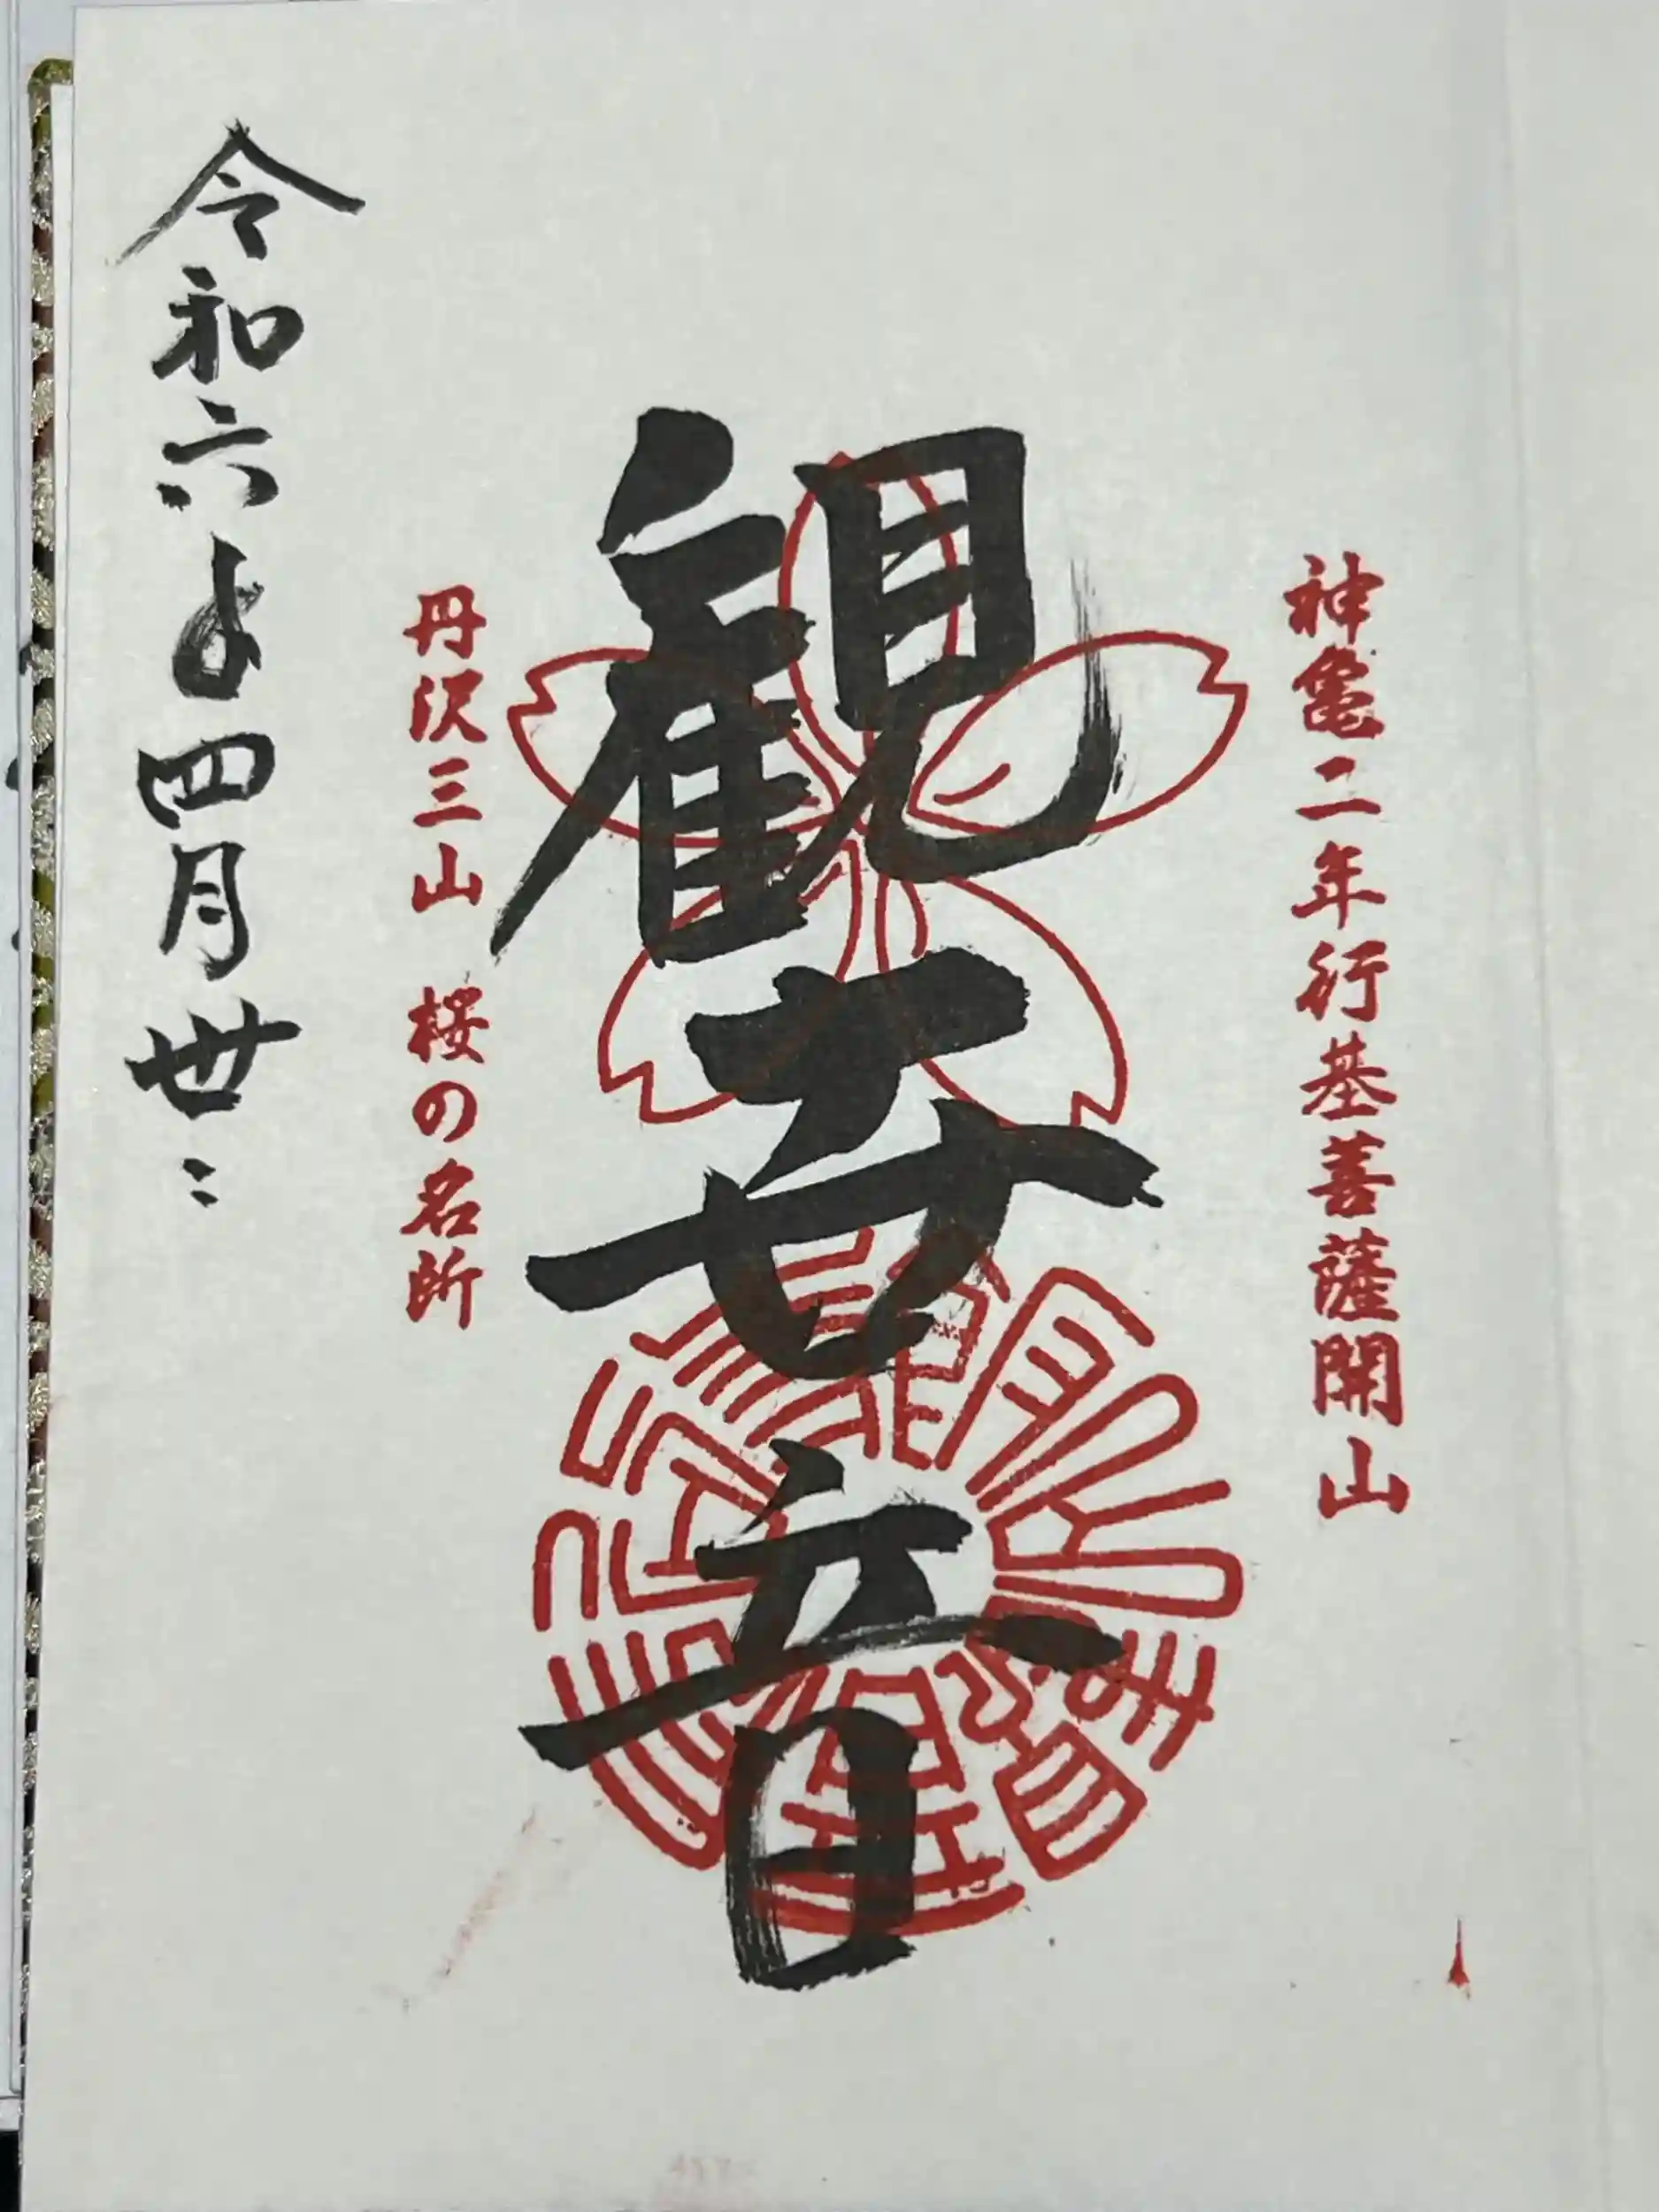 神亀二年行基菩薩開山
観世音
丹沢三山 桜の名所
令和六年四月廿二